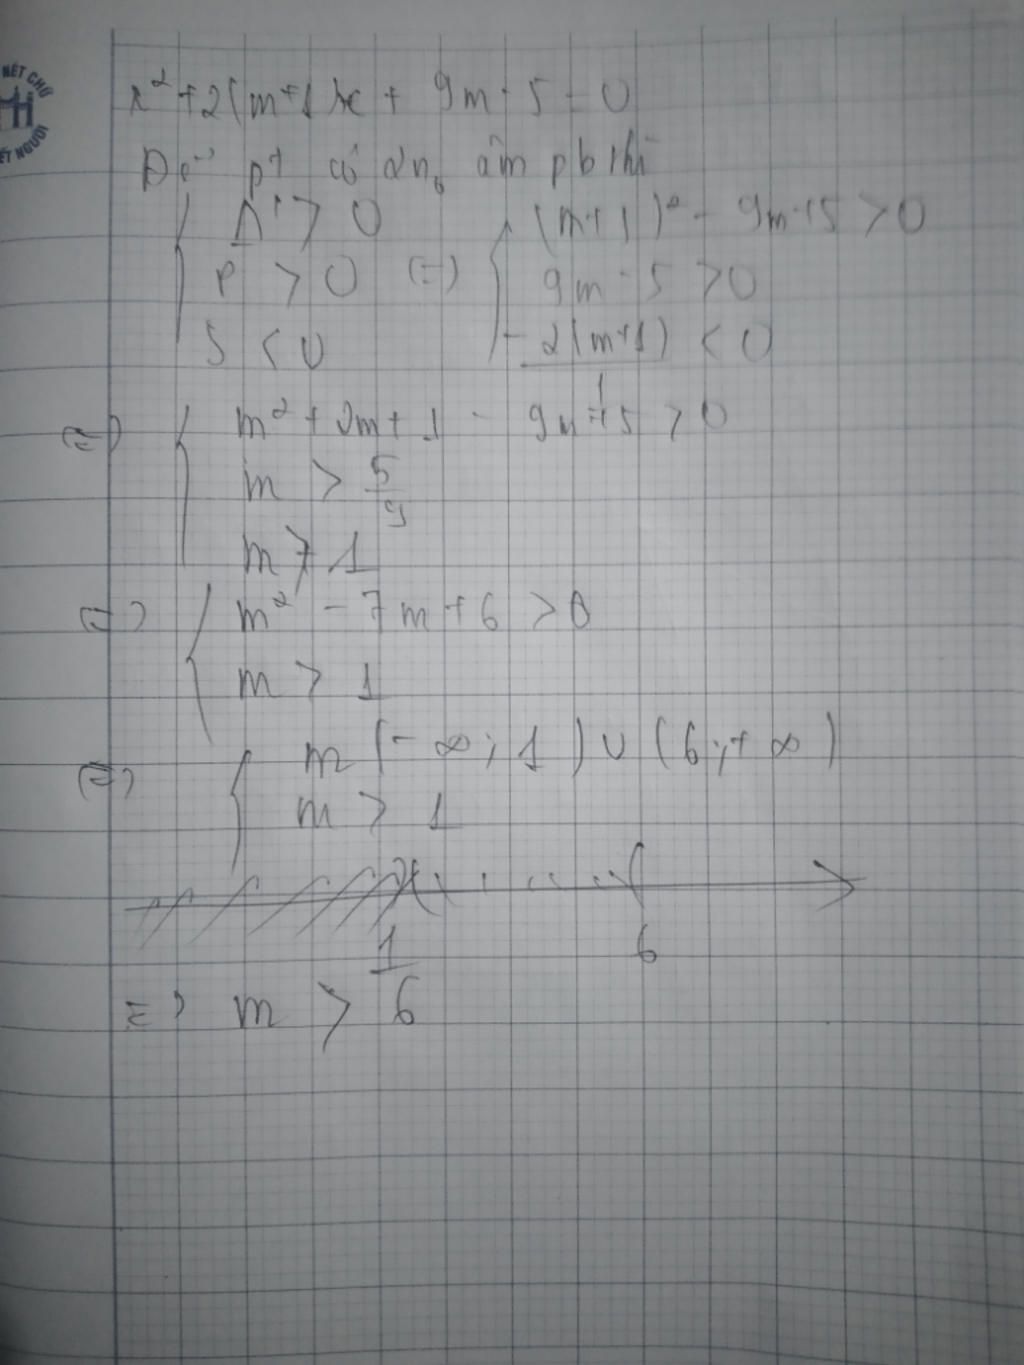 NÉT CHỮ
NẾT NGƯỜI
x² + 2(m+1)x + 9m - 5 = 0
Để pt có 2n₀ âm pb thì
Δ' > 0 (m+1)² - 9m+5 > 0
P > 0 (=) 9m - 5 > 0
S < 0 -2(m+1)/1 < 0
(=) m² + 2m + 1 - 9m + 5 > 0
m > 5/9
m > 1
(=) m² - 7m + 6 > 0
m > 1
(=) m (-∞; 1) ∪ (6; +∞)
m > 1
1 6
=) m > 6